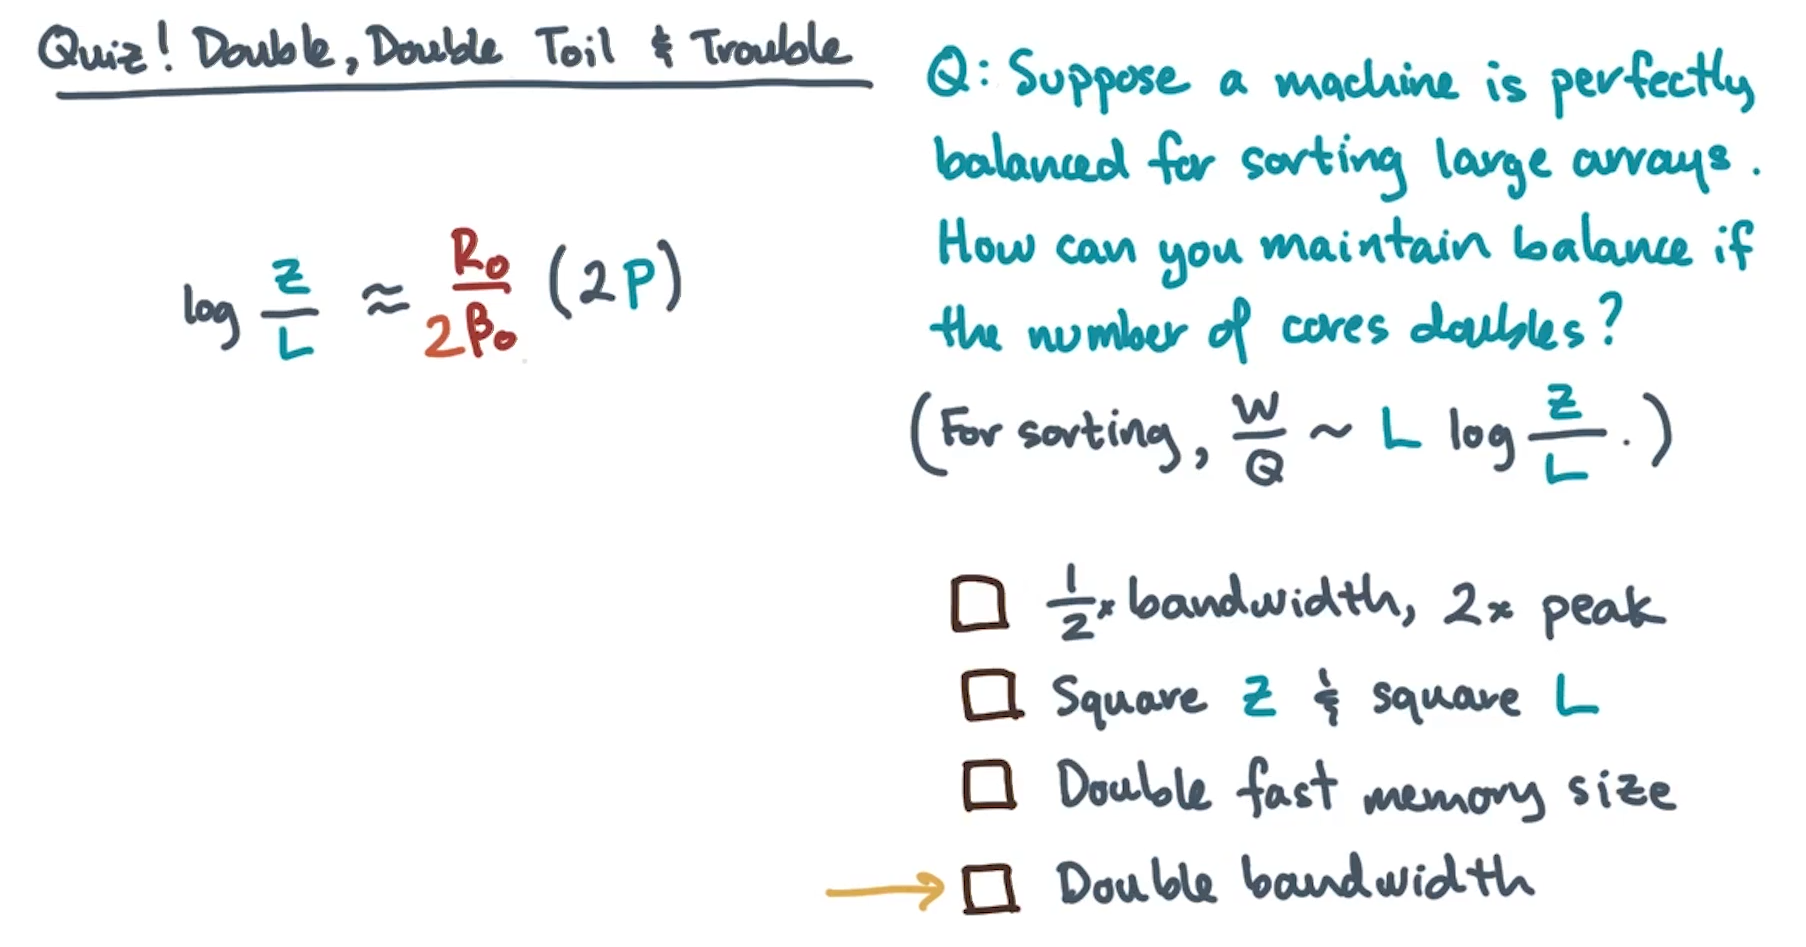 Quiz! Double, Double Toil & Trouble
log Z/L ≈ R₀/2β₀ (2P)
Q: Suppose a machine is perfectly
balanced for sorting large arrays.
How can you maintain balance if
the number of cores doubles?
(For sorting, W/Q ~ L log Z/L.)
1/2x bandwidth, 2x peak
Square Z & square L
Double fast memory size
Double bandwidth